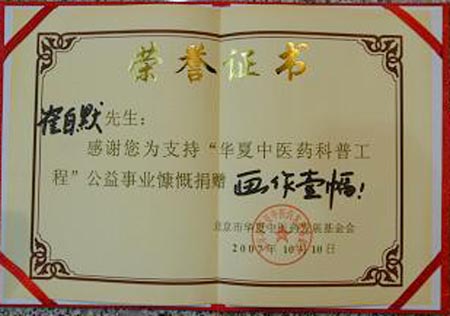 荣誉证书
崔自默先生：
感谢您为支持“华夏中医药科普工
程”公益事业慷慨捐赠画作壹幅！
北京市华夏中医药发展基金会
2007年10月10日